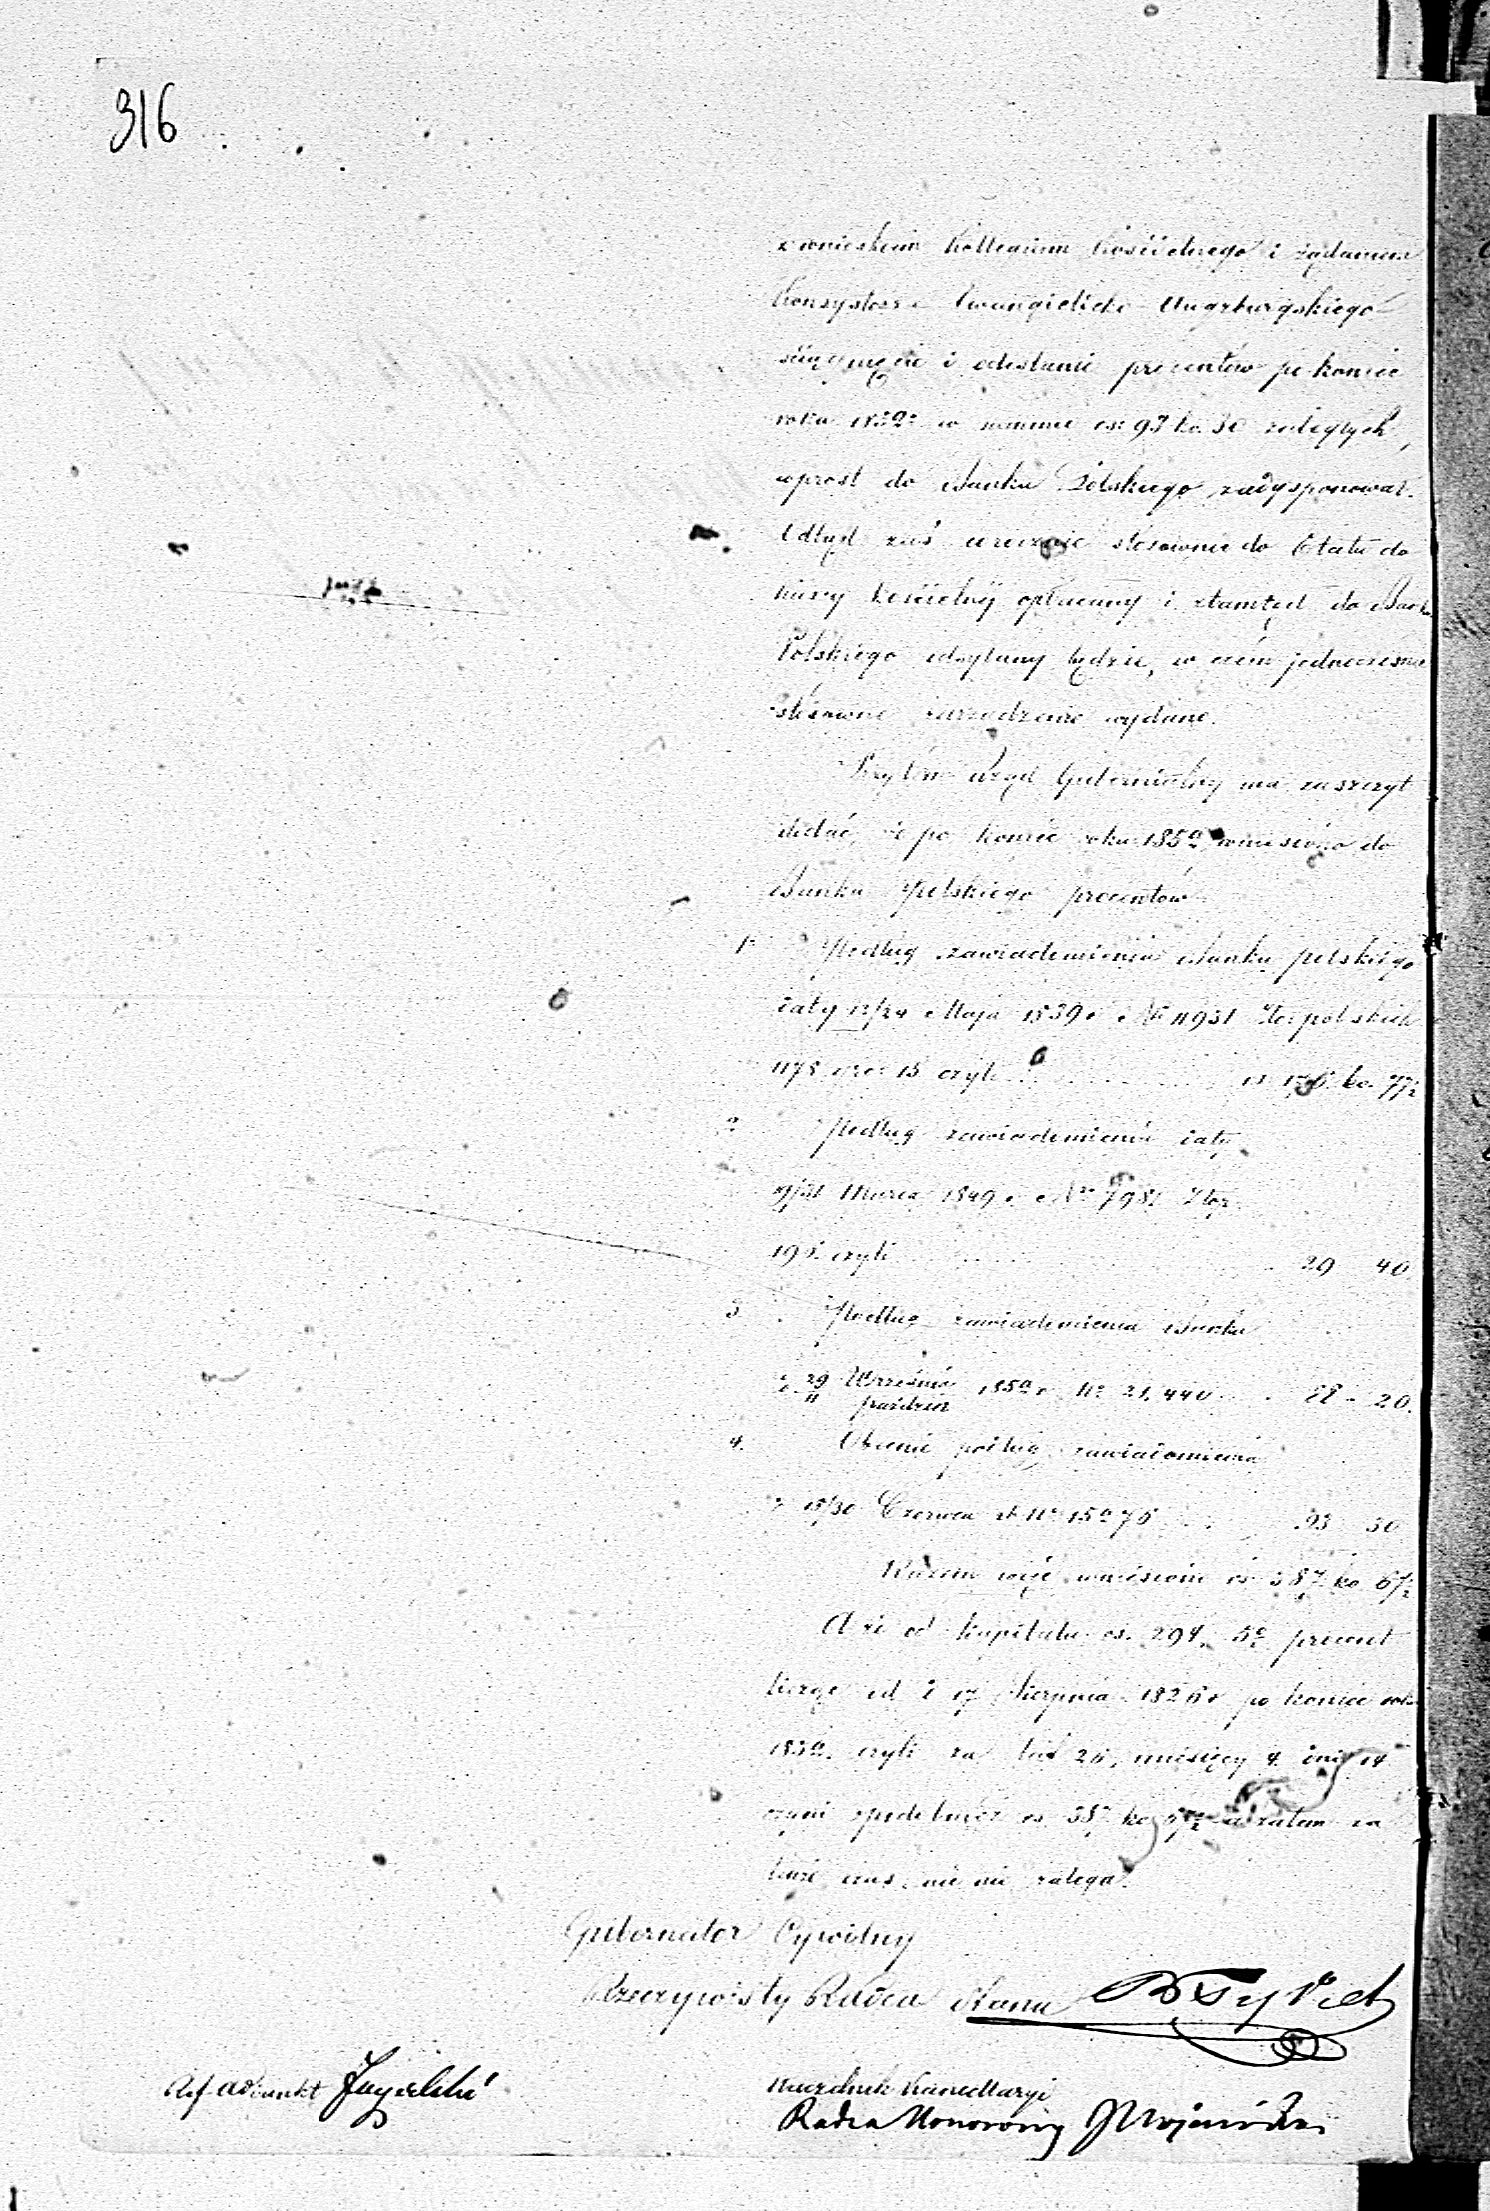 316
z wnioskiem Kollegium Kościelnego i żądaniem
Konsystorza Ewangielicko Augsburgskiego
ściągnięcie i odesłanie procentów po koniec
roku 1852 w summie rs: 93 ko. 30 zaległych,
wprost do Banku Polskiego zadysponował.
Odtąd zaś corocznie stosownie do Etatu do
kassy kościelnej opłacany i ztamtąd do Banku
Polskiego odsyłany będzie, w czém jednocześnie
stosowne zarządzenie wydane.
Przytém Rząd Gubernialny ma zaszczyt
dodać, że po koniec roku 1852 wniesiono do
Banku Polskiego procentów
1. Podług zawiadomienia Banku polskiego
daty 12/24 Maja 1839 r No 11931 Złp: polskich
1178 gr. 15 czyli rs 176 ko. 77½
2. Podług zawiadomienia daty
19/31 Marca 1849 r. No 7981 Złp.
196 czyli 29 40
3. Podług zawiadomienia Banku
z 29 Września 1852 r No 21,440 88 - 20.
11 paździer
4. Obecnie podług zawiadomienia
z 18/30 Czerwca rb No 15276 93 30
Razem więc wniesiono rs 387 ko 67½
A że od kapitału rs. 294, 5% procent
licząc od d 17 Sierpnia 1826 r po koniec roku
1852. czyli za lat 26, miesięcy 4. dni 14
czyni rs 387 ko 67½ a zatem za
czas nic nie zalega.
Gubernator Cywilny
Rzeczywisty Radca Stanu
Naczelnik Kancellaryi
Ref Adiunkt Jagielski
Radca Honorowy